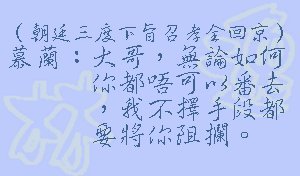 (朝廷三度下旨召孝全回京)
慕蘭：大哥，無論如何
你都唔可以番去
，我不擇手段都
要將你阻攔。